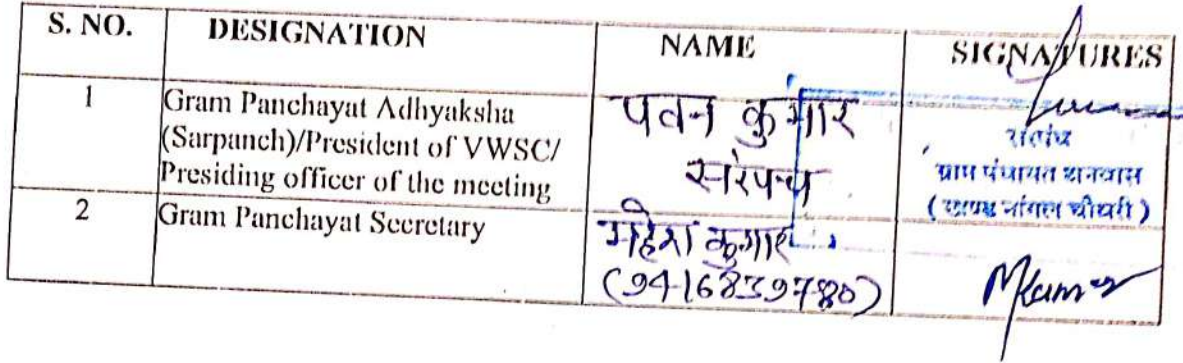 S. NO. DESIGNATION NAME SIGNATURES
1 Gram Panchayat Adhyaksha
(Sarpanch)/President of VWSC/
Presiding officer of the meeting
पवन कुमार
सरंपन्च
सरपंच
ग्राम पंचायत
( खण्ड नांगल चौधरी )
2 Gram Panchayat Secretary
महेश कुमार
(9416839780)
MKumar